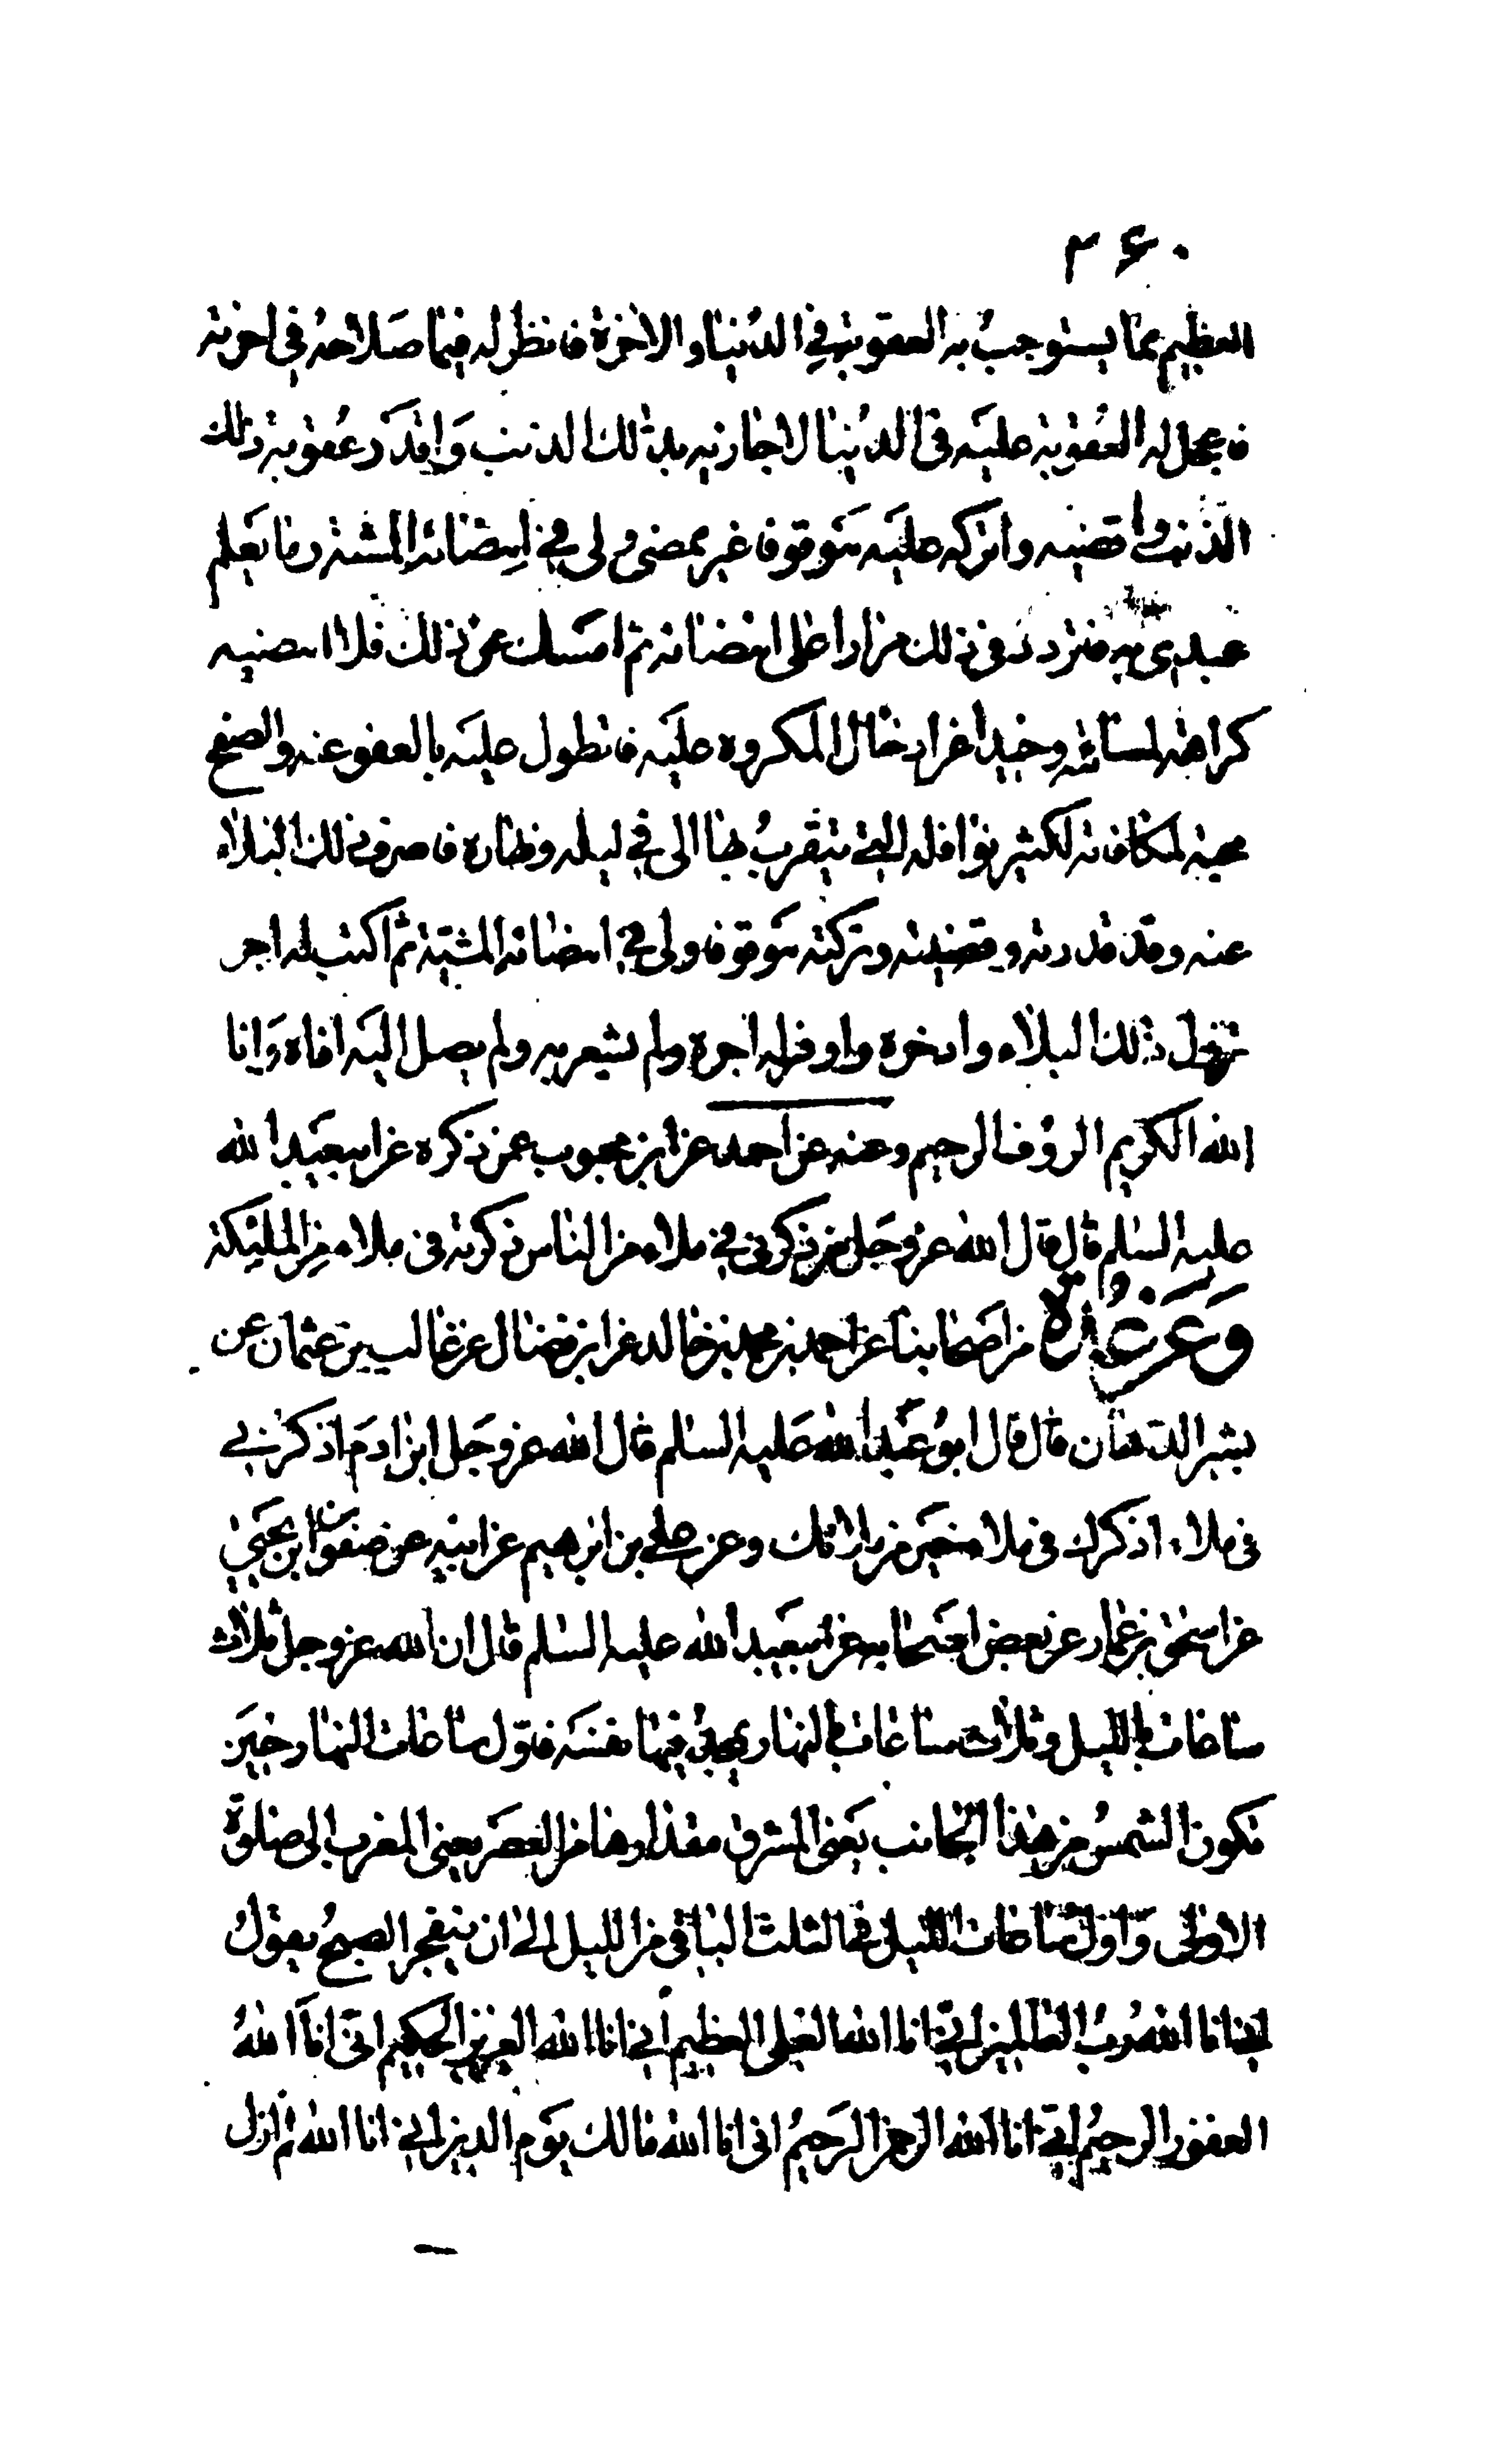 ۲۶۰
العظيم مما يستوجب به العقوبة في الدنيا والاخرة فانظر له فيما صلاحه في اخرته
فاعجل له العقوبة عليه في الدنيا لاجازيه بذلك الذنب واقدر عقوبة ذلك
الذنب واقضيه واتركه عليه موقوفا غير ممضى ولى في امضائه المشية وما يعلم
عبدى به فاتردد في ذلك مرارا على امضائه ثم امسك عن ذلك فلا امضيه
كراهة لمسائته وحيدا عن ادخال المكروه عليه فاتطول عليه بالعفو عنه والصفح
محبة لمكافاته لكثير نوافله التي يتقرب بها الى في ليله ونهاره فاصرف ذلك البلاء
عنه وقد قدرته وقضيته وتركته موقوفا ولى في امضائه المشية ثم اكتب له اجر
نزول ذلك البلاء وادخره واوفر له اجره ولم يشعر به ولم يصل اليه اذاه وانا
الله الكريم الرؤف الرحيم وعنه عن احمد عن ابن محبوب عمن ذكره عن ابيعبدالله
عليه السلم قال قال الله عز وجل من ذكرنى في ملاء من الناس ذكرته فى ملاء من الملئكة
وعن عدة من اصحابنا عن احمد بن محمد بن خالد عن ابن فضال عن غالب بن عثمان عن
بشير الدهان قال قال ابو عبدالله عليه السلم قال الله عز وجل ابن ادم اذكرنى
فى ملاء اذكرك فى ملاء خير من ملائك وعن على بن ابرهيم عن ابيه عن صفوان بن يحيى
عن اسحق بن عمار عن بعض اصحابه عن ابيعبدالله عليه السلم قال ان لله عز وجل ثلاث
ساعات فى الليل وثلاث ساعات فى النهار يمجد فيها نفسه فاول ساعات النهار حين
تكون الشمس من هذا الجانب يعنى المشرق مقدارها من العصر يعنى المغرب الى صلوة
الاولى واول ساعات الليل فى الثلث الباقى من الليل الى ان ينفجر الصبح يقول
انى انا الله رب العالمين انى انا الله العلى العظيم انى انا الله العزيز الحكيم انى انا الله
الغفور الرحيم انى انا الله الرحمن الرحيم انى انا الله مالك يوم الدين انى انا الله لم ازل